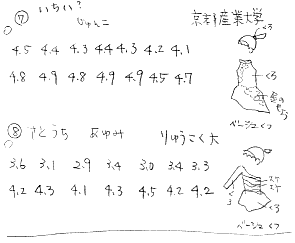 ⑦ いちい? じゅんこ 京都産業大学
4.5 4.4 4.3 4.4 4.3 4.2 4.1
4.8 4.9 4.8 4.9 4.9 4.5 4.7
くろ
くろ
ベージュくつ
⑧ さとうち あゆみ りゅうこく大
3.6 3.1 2.9 3.4 3.0 3.4 3.3
4.2 4.3 4.1 4.3 4.5 4.2 4.2
スケ
スケ
くろ
くろ
ベージュくつ